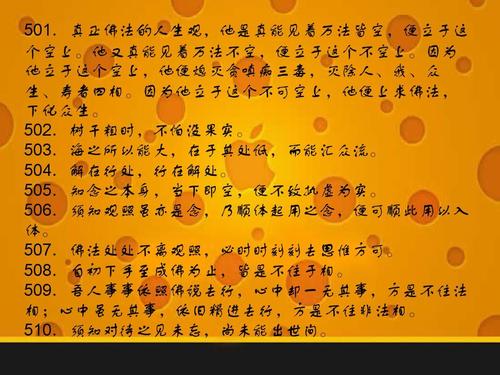 501. 真正佛法的人生观，他是真能见着万法皆空，便立于这
个空上。他又真能见着万法不空，便立于这个不空上。因为
他立于这个空上，他便熄灭贪嗔痴三毒，灭除人、我、众
生、寿者四相。因为他立于这个不可空上，他便上求佛法，
下化众生。
502. 树干粗时，不怕没果实。
503. 海之所以能大，在于其处低，而能汇众流。
504. 解在行处，行在解处。
505. 知念之本身，当下即空，便不致执虚为实。
506. 须知观照虽亦是念，乃顺体起用之念，便可顺此用以入
体。
507. 佛法处处不离观照，必时时刻刻去思惟方可。
508. 自初下手至成佛为止，皆是不住于相。
509. 吾人事事依照佛说去行，心中却一无其事，方是不住法
相；心中虽无其事，依旧精进去行，方是不住非法相。
510. 须知对待之见未忘，尚未能出世间。